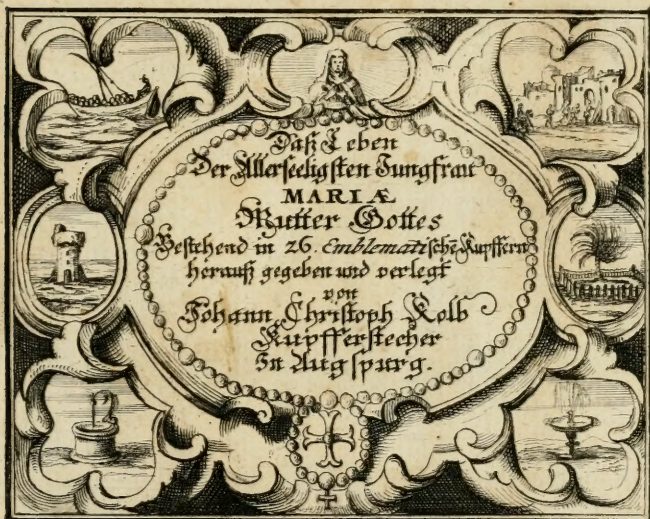 Daß Leben
Der Allerseeligsten Jungfrau
MARIÆ
Mutter Gottes
Bestehend in 26. Emblematischē Kupffern
herauß gegeben und verlegt
von
Johann Christoph Kolb
Kupfferstecher
In Augspurg.